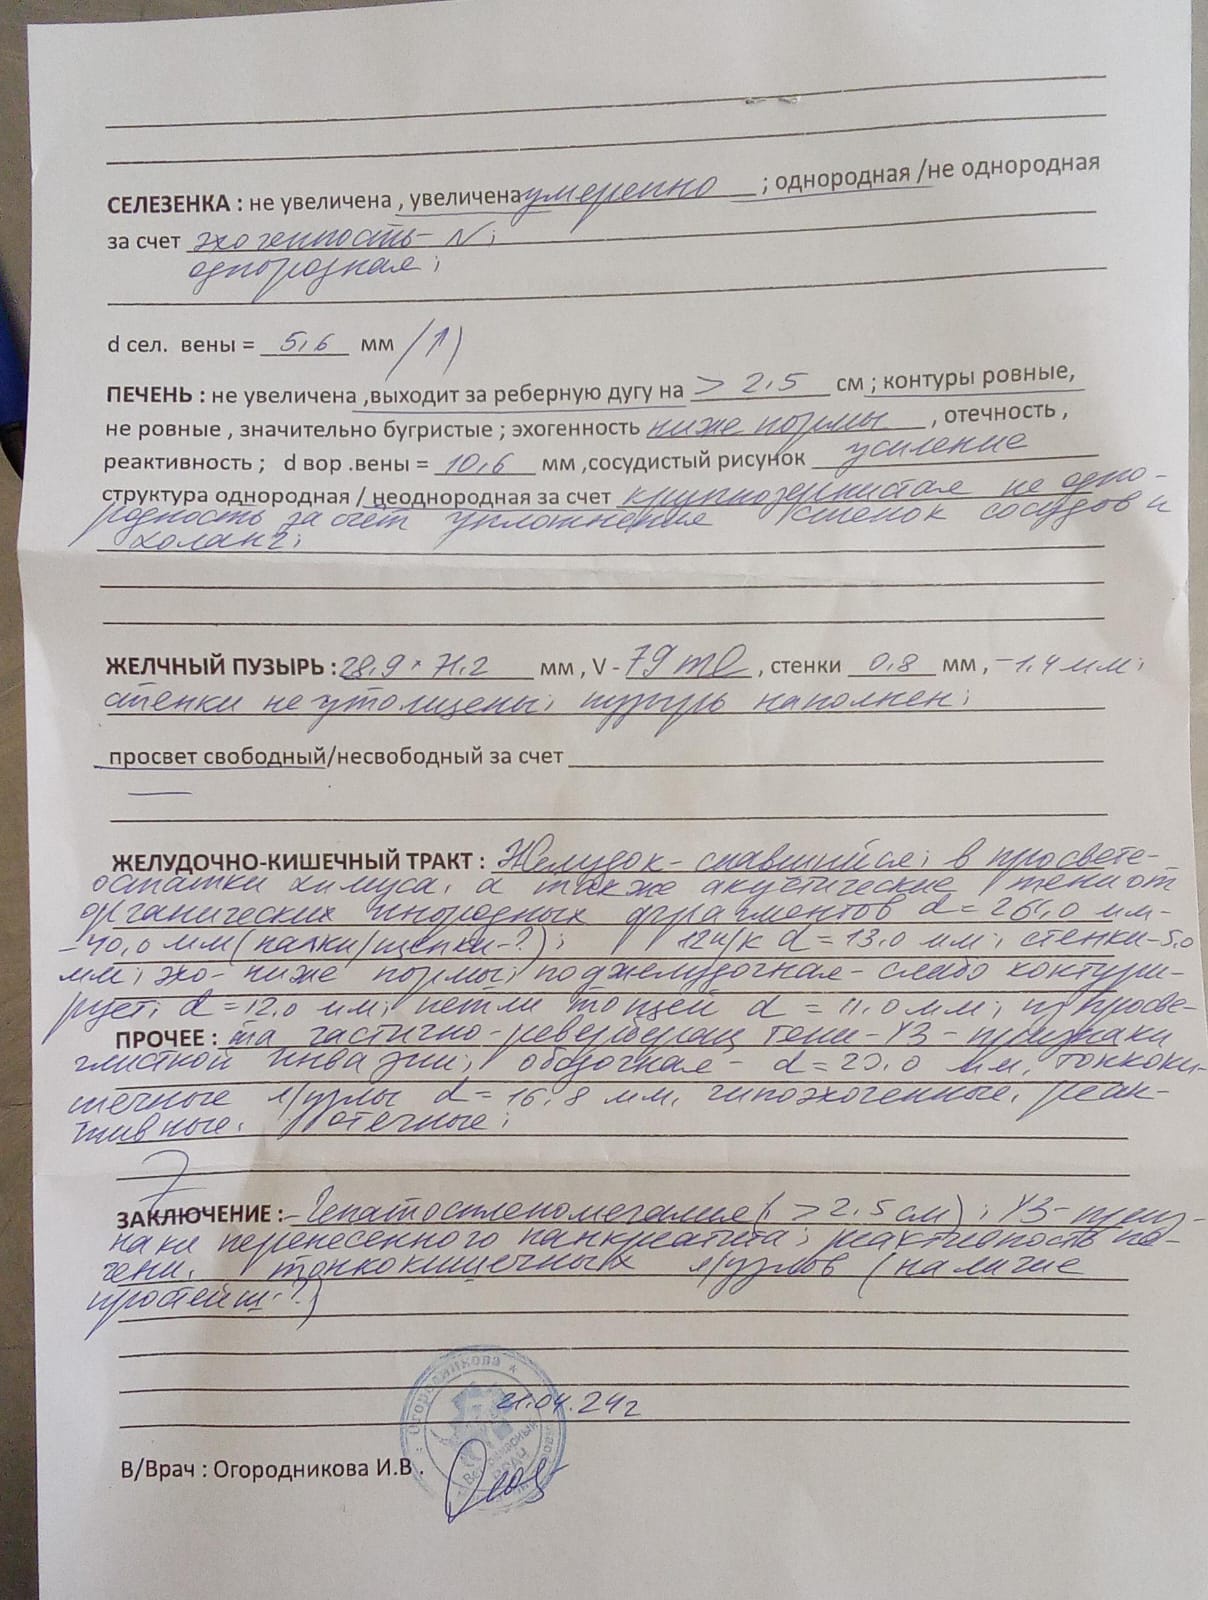 СЕЛЕЗЕНКА : не увеличена , увеличена умеренно ; однородная /не однородная
за счет эхогенность - N;
однородная;
d сел. вены = 5,6 мм (↑)
ПЕЧЕНЬ : не увеличена ,выходит за реберную дугу на > 2,5 см ; контуры ровные,
не ровные , значительно бугристые ; эхогенность ниже нормы , отечность ,
реактивность ; d вор .вены = 10,6 мм ,сосудистый рисунок усиление
структура однородная / неоднородная за счет крупнозернистая не одно-
родность за счёт уплотнения стенок сосудов и
холанг;
ЖЕЛЧНЫЙ ПУЗЫРЬ : 28,9 × 71,2 мм , V - 79 ml , стенки 0,8 мм , - 1,4 мм;
стенки не утолщены; пузырь наполнен;
просвет свободный/несвободный за счет
ЖЕЛУДОЧНО-КИШЕЧНЫЙ ТРАКТ : Желудок - спавшийся; в просвете -
остатки химуса, а также акустические тени от
органических инородных фрагментов d = 26,0 мм -
- 40,0 мм (палки/щепки - ?); 12п/к d = 13,0 мм; стенки - 5,0
мм; эхо - ниже нормы; поджелудочная - слабо контури-
рует; d = 12,0 мм; петли тощей d = 11,0 мм; из просве-
ПРОЧЕЕ : та частично - ревербрац тени - УЗ - признаки
глистной инвазии; ободочная - d = 20,0 мм, тонкоки-
шечные л/узлы d = 16,8 мм, гипоэхогенные, реак-
тивные, отечные;
ЗАКЛЮЧЕНИЕ : - Гепатоспленомегалия ( > 2,5 см) ; УЗ - приз-
наки перенесенного панкреатита; реактивность пе-
чени, тонкокишечных л/узлов (наличие
простейш - ?)
Огородникова
21.04.24г
В/Врач : Огородникова И.В .